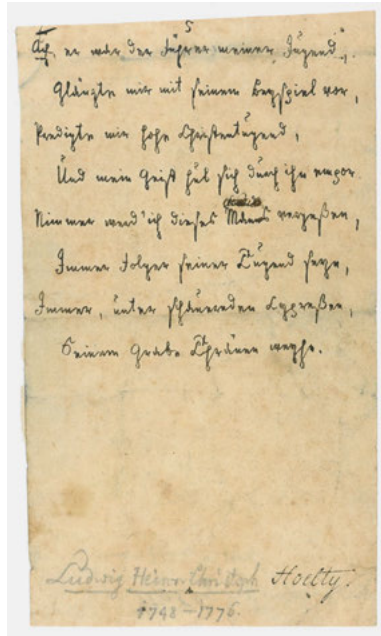 5
Ach, er war der Führer meiner Jugend,
Glänzte mir mit seinem Beyspiel vor,
Predigte mir hohe Christentugend,
Und mein Geist hub sich durch ihn empor.
Nimmer werd' ich dieses vergeßen,
Immer Folger seiner Tugend seyn,
Immer, unter schauernden Cypreßen,
Seinem Grabe Thränen weyhn.
Ludwig Heinr. Christoph Hoelty.
1748-1776.